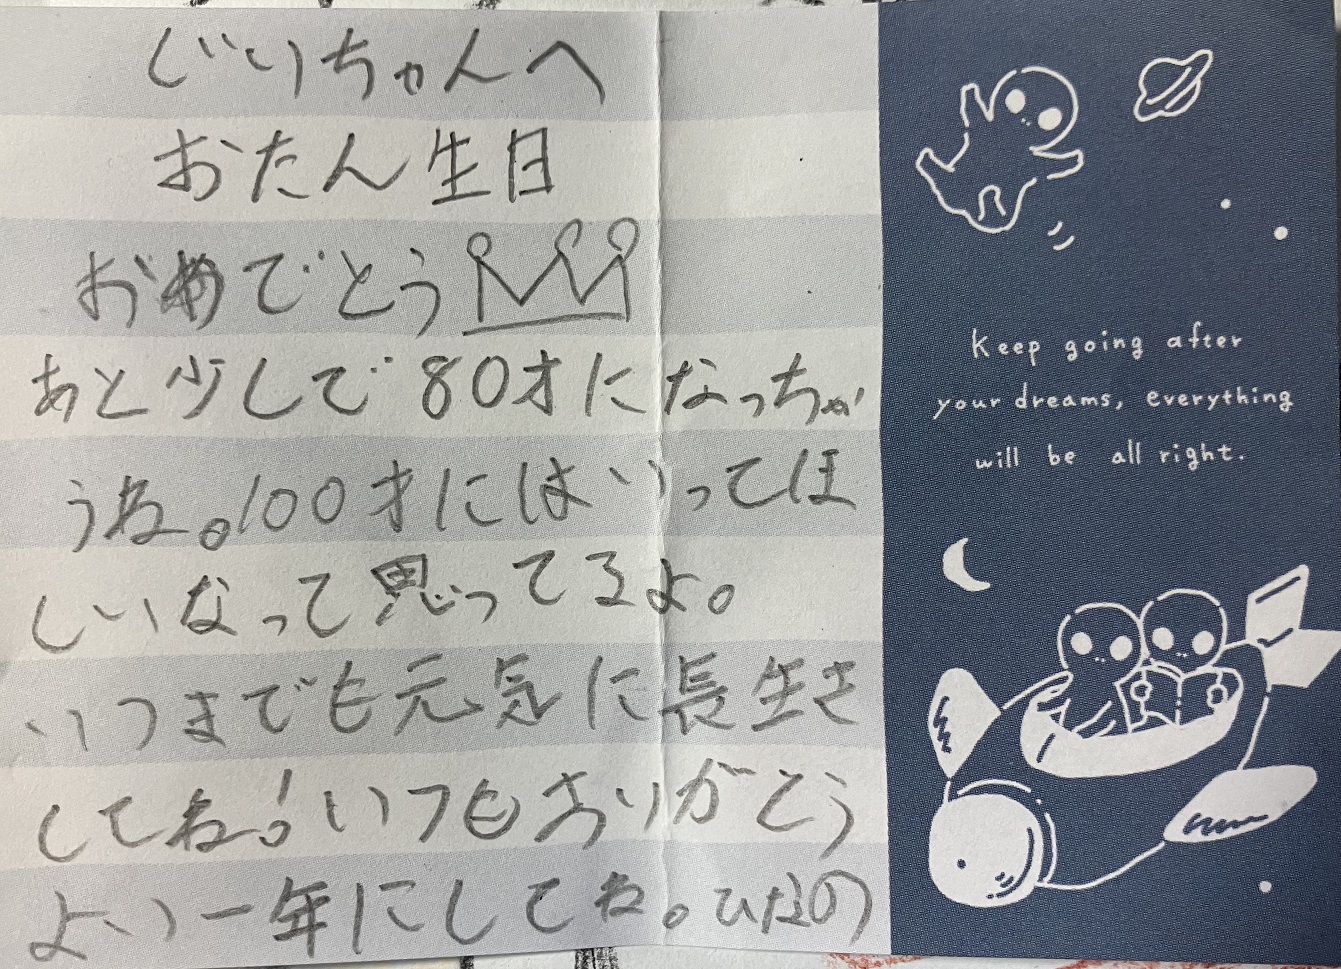 じいちゃんへ
おたん生日
おめでとう
あと少しで80才になっちゃ
うね。100才にはいってほ
しいなって思ってるよ。
いつまでも元気に長生き
してね!いつもありがとう
よい一年にしてね。ひなの
Keep going after
your dreams, everything
will be all right.